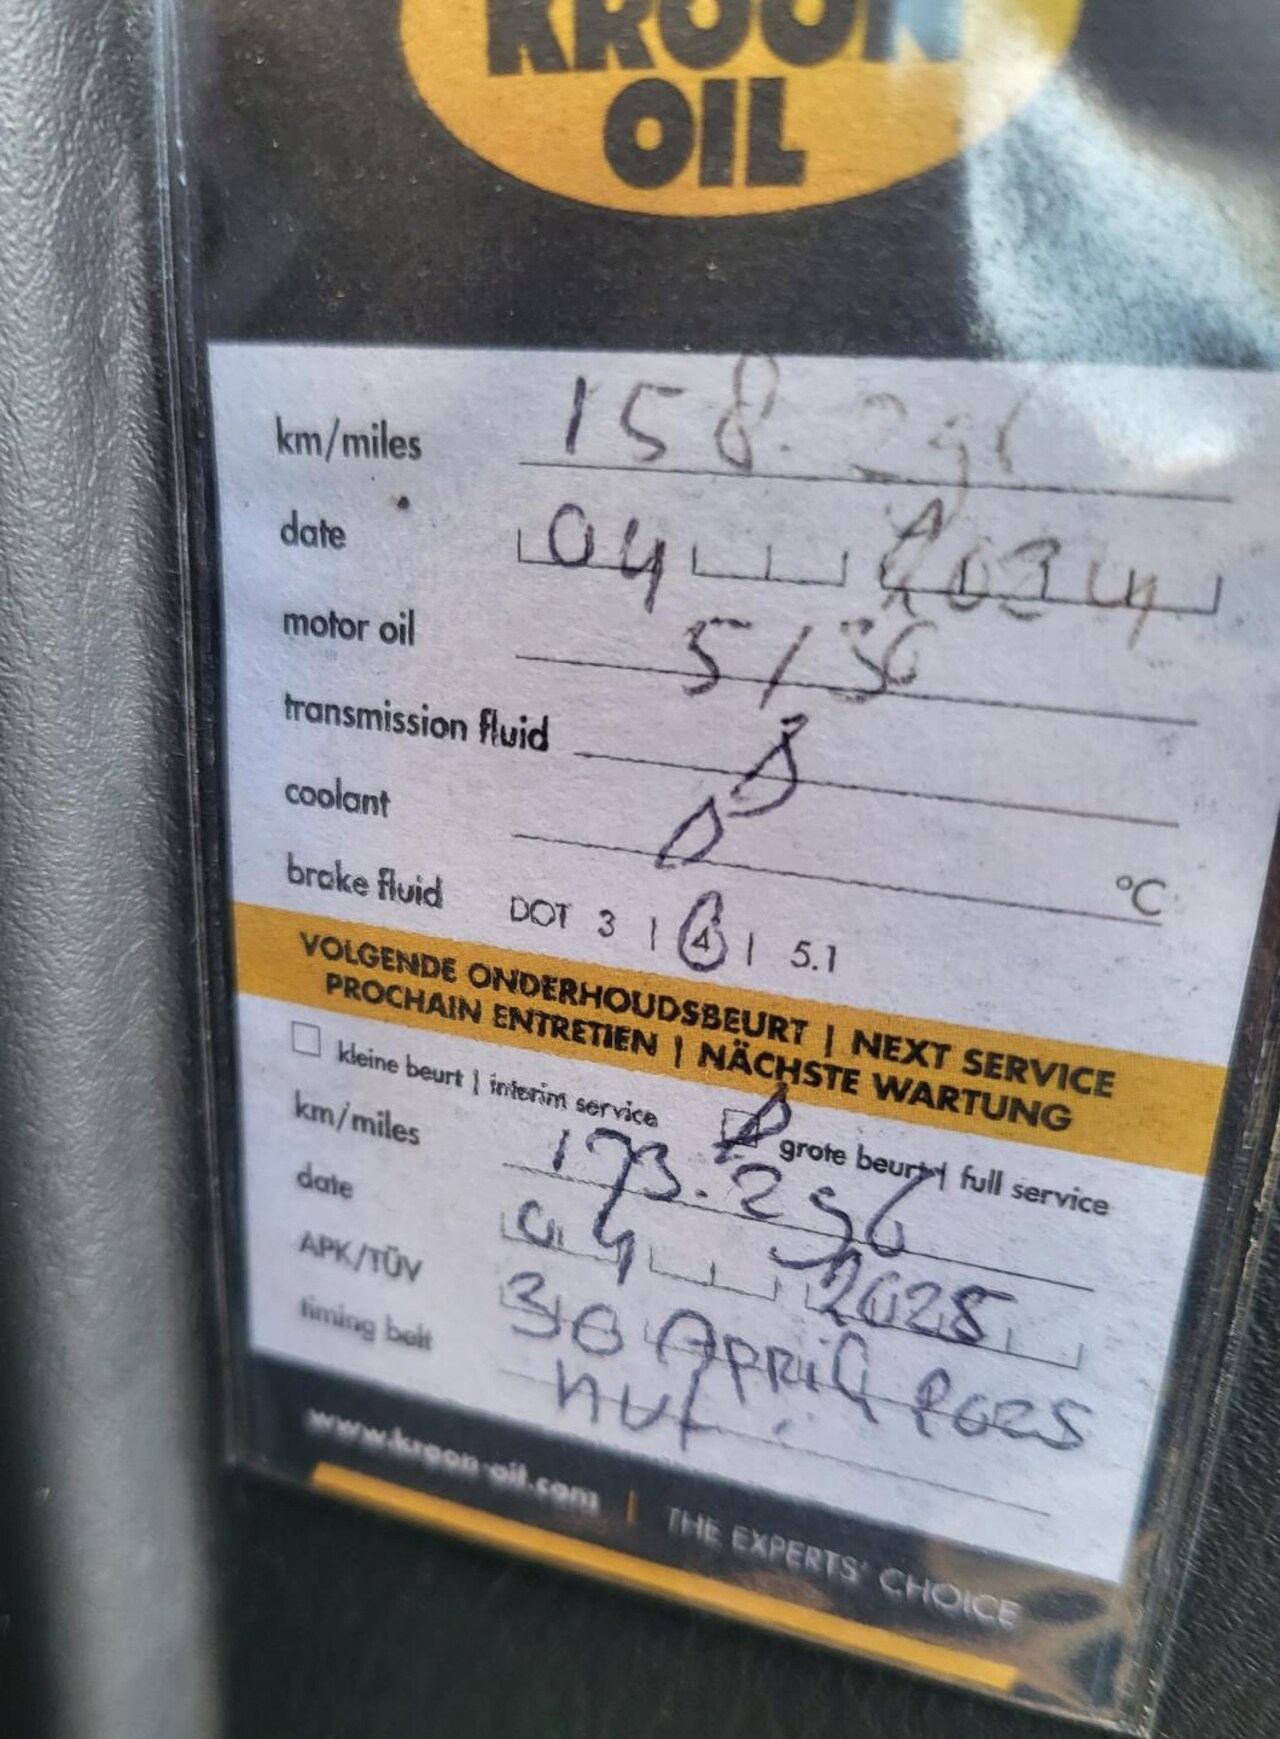 KROON
OIL
km/miles 158.296
date 04 2024
motor oil 5/30
transmission fluid
coannt °C
brake fluid DOT 3 | 4 | 5.1
VOLGENDE ONDERHOUDSBEURT | NEXT SERVICE
PROCHAIN ENTRETIEN | NÄCHSTE WARTUNG
kleine beurt | interim service grote beurt | full service
km/miles 173.296
date 04 2025
APK/TÜV 30 April 2025
timing belt nvt.
www.kroon-oil.com | THE EXPERTS' CHOICE